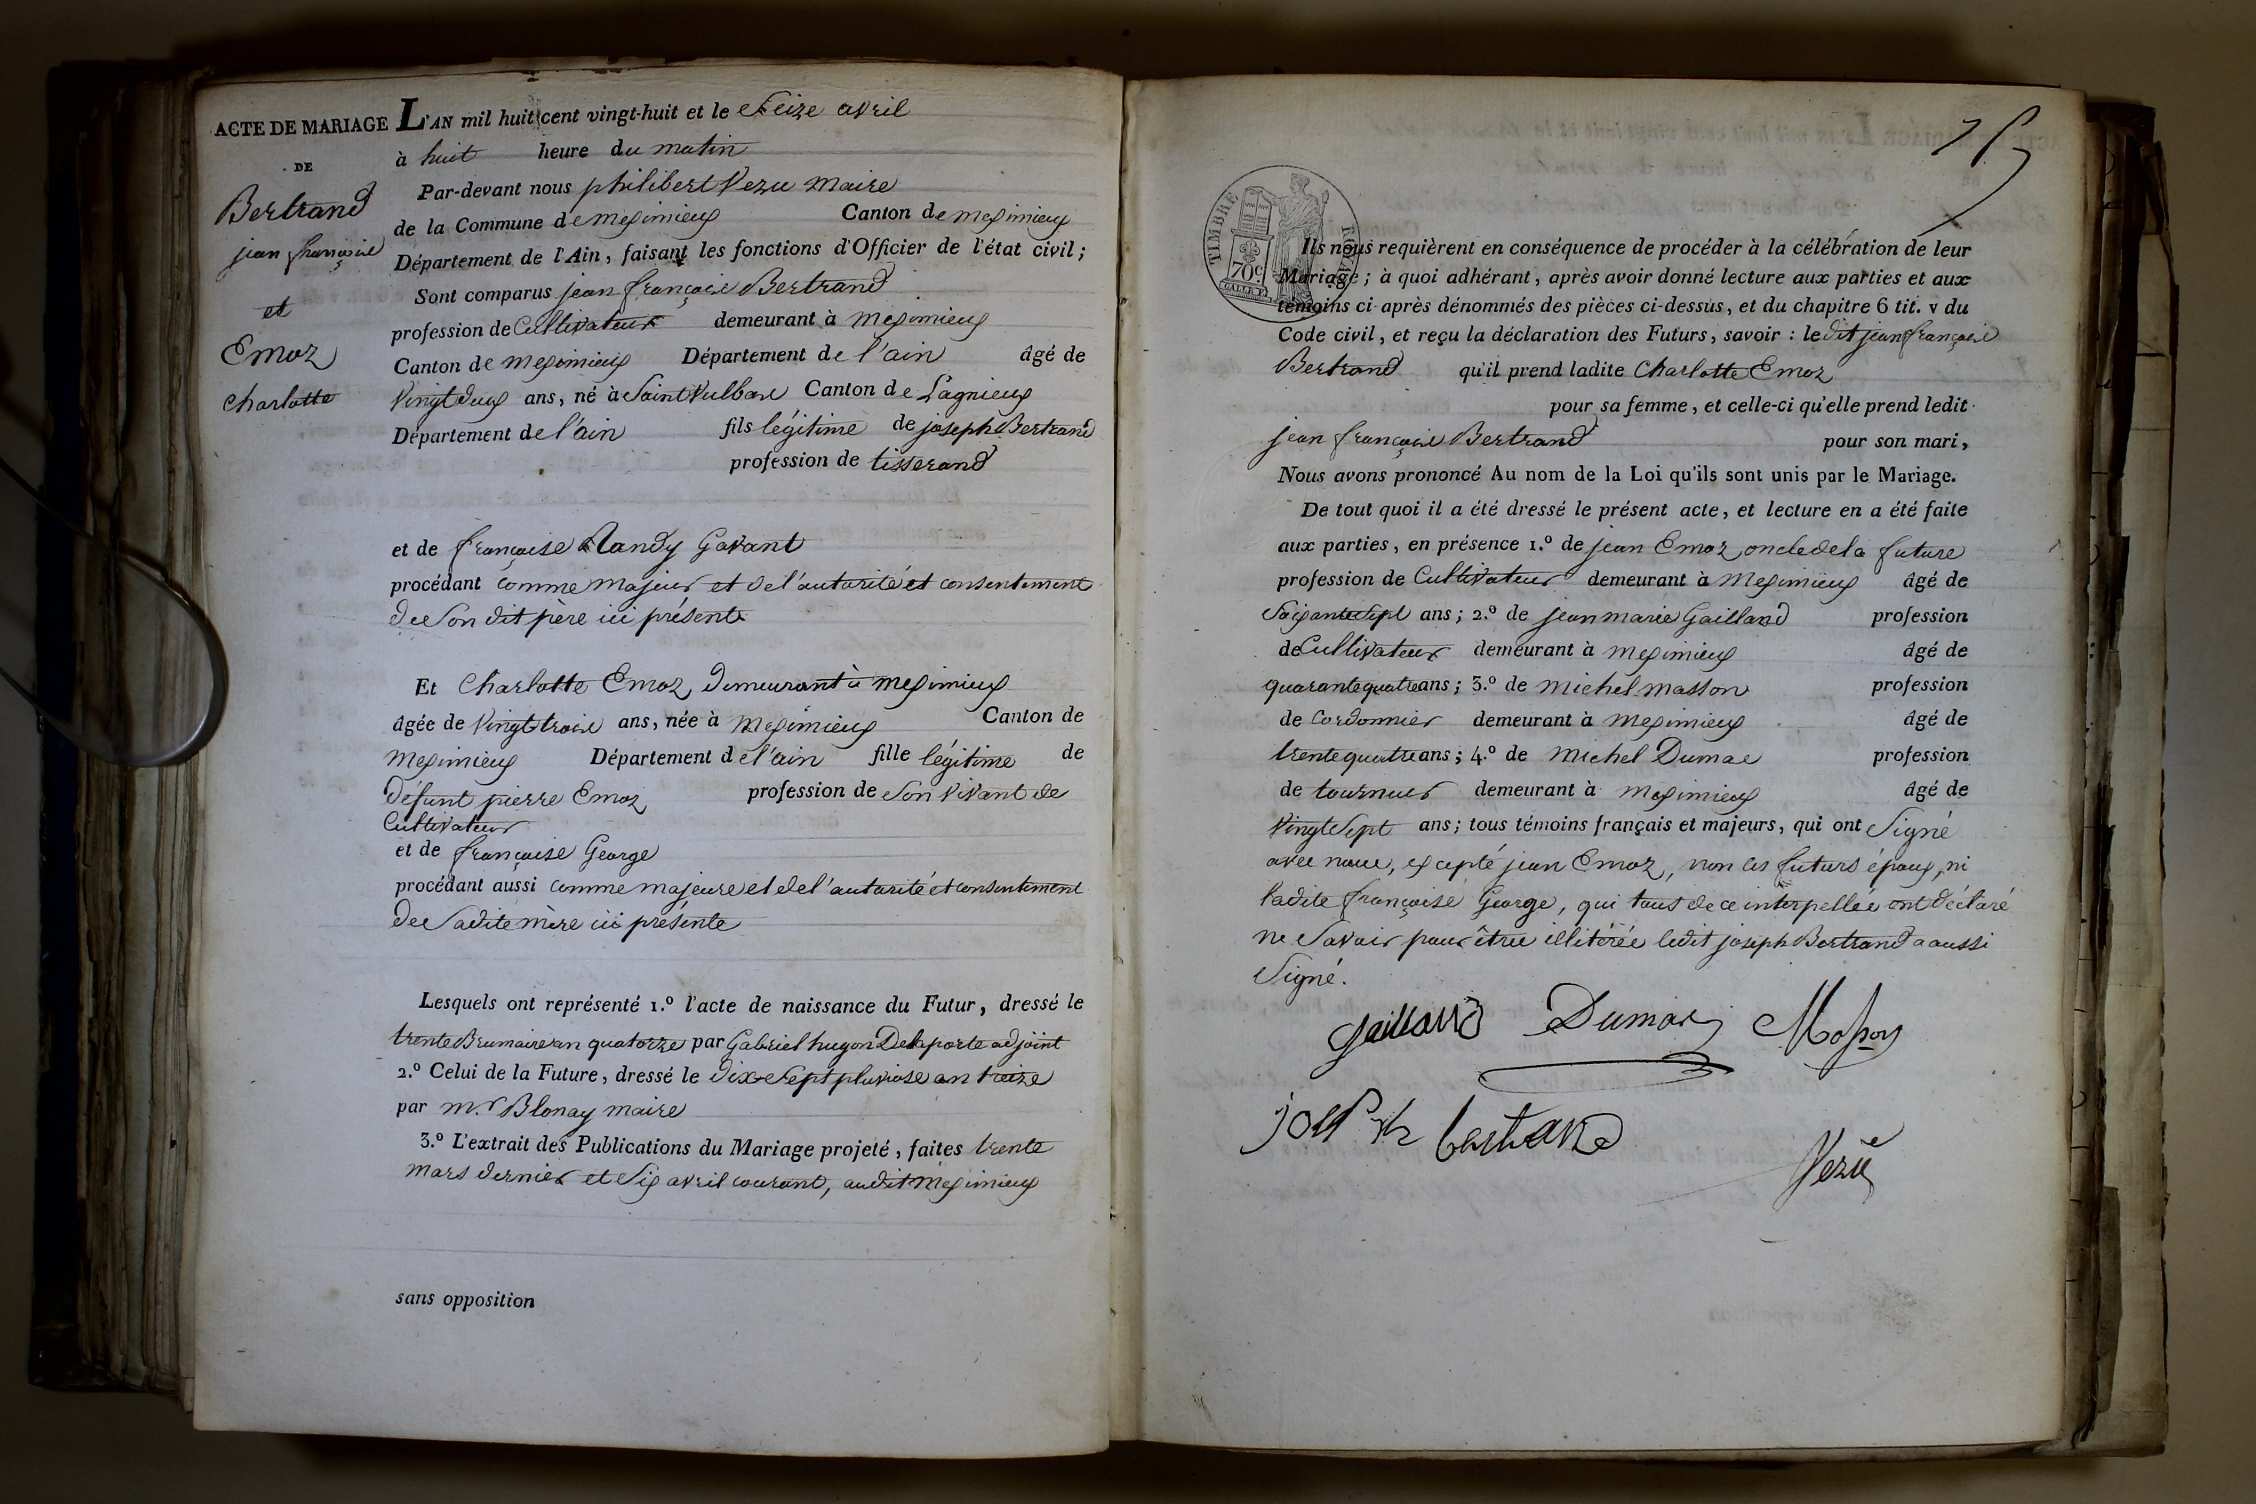 ACTE DE MARIAGE
DE
Bertrand
jean françois
et
Emoz
Charlotte
L'AN mil huit cent vingt-huit et le Seize avril
à huit heure du matin
Par-devant nous philibert Vezu maire
de la Commune de meximieux Canton de meximieux
Département de l'Ain, faisant les fonctions d'Officier de l'état civil;
Sont comparus jean françois Bertrand
profession de Cultivateur demeurant à meximieux
Canton de meximieux Département de l'ain âgé de
Vingt deux ans, né à Saint Vulbas Canton de Lagnieux
Département de l'ain fils légitime de joseph Bertrand
profession de tisserand
et de françoise Nandy Gavant
procédant comme majeur et de l'autorité et consentement
de Son dit père ici présent
Et Charlotte Emoz, demeurant à meximieux
âgée de Vingt trois ans, née à meximieux Canton de
meximieux Département de l'ain fille légitime de
défunt pierre Emoz profession de Son Vivant de
Cultivateur
et de françoise George
procédant aussi comme majeure et de l'autorité et consentement
de Sadite mère ici présente
Lesquels ont représenté 1.º l'acte de naissance du Futur, dressé le
trente Brumaire an quatorze par Gabriel hugon Delaporte adjoint
2.º Celui de la Future, dressé le dix-Sept pluviose an treize
par m.r Blonay maire
3.º L'extrait des Publications du Mariage projeté, faites trente
mars dernier et Six avril courant, audit meximieux
sans opposition
TIMBRE ROYAL
70c
Ils nous requièrent en conséquence de procéder à la célébration de leur
Mariage; à quoi adhérant, après avoir donné lecture aux parties et aux
témoins ci-après dénommés des pièces ci-dessus, et du chapitre 6 tit. v du
Code civil, et reçu la déclaration des Futurs, savoir : le dit jean françois
Bertrand qu'il prend ladite Charlotte Emoz
pour sa femme, et celle-ci qu'elle prend ledit
jean françois Bertrand pour son mari,
Nous avons prononcé Au nom de la Loi qu'ils sont unis par le Mariage.
De tout quoi il a été dressé le présent acte, et lecture en a été faite
aux parties, en présence 1.º de jean Emoz oncle de la future
profession de Cultivateur demeurant à meximieux âgé de
Soixante Sept ans; 2.º de jean marie Gailland profession
de Cultivateur demeurant à meximieux âgé de
quarante quatre ans; 3.º de michel masson profession
de Cordonnier demeurant à meximieux âgé de
trente quatre ans; 4.º de michel Dumas profession
de tourneur demeurant à meximieux âgé de
Vingt Sept ans; tous témoins français et majeurs, qui ont Signé
avec nous, excepté jean Emoz, non les futurs époux, ni
ladite françoise George, qui tous de ce interpellés ont déclaré
ne Savoir pour être illitérés ledit joseph Bertrand a aussi
Signé.
Gailland Dumas Masson
joseph bertrand
Vezu